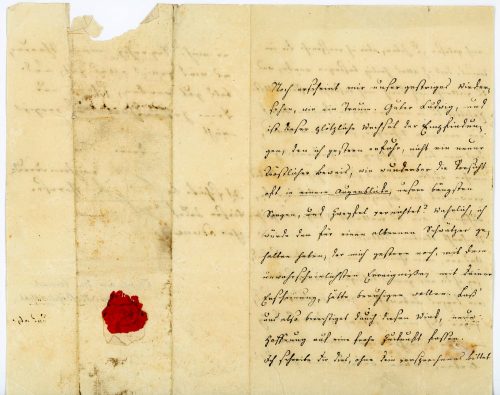 Noch erscheint mir unser gestriges Wieder-
sehen, wie ein Traum. Guter Ludwig, und
ist dieser plötzliche Wechsel der Empfindun-
gen, den ich gestern erfuhr, nicht ein neuer
tröstlicher Beweis, wie wunderbar die Vorsicht
oft in einem Augenblicke, unsere bängsten
Sorgen, und Zweifel vernichtet? Wahrlich, ich
würde den für einen albernen Schwätzer ge-
halten haben, der mich gestern noch, mit dem
unwahrscheinlichsten Ereignißen, mit Deiner
Erscheinung, hätte beruhigen wollen. Laß
uns also beruhigt durch diesen Wink, neue
Hoffnung auf eine frohe Zukunft fassen.
Ich schreibe Dir dies, ohne dem versprochenes